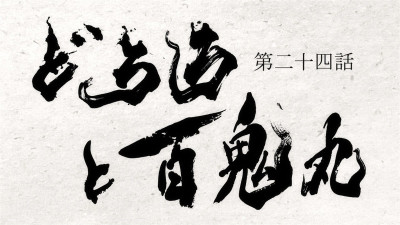 第二十四話
どろろ
と百鬼丸